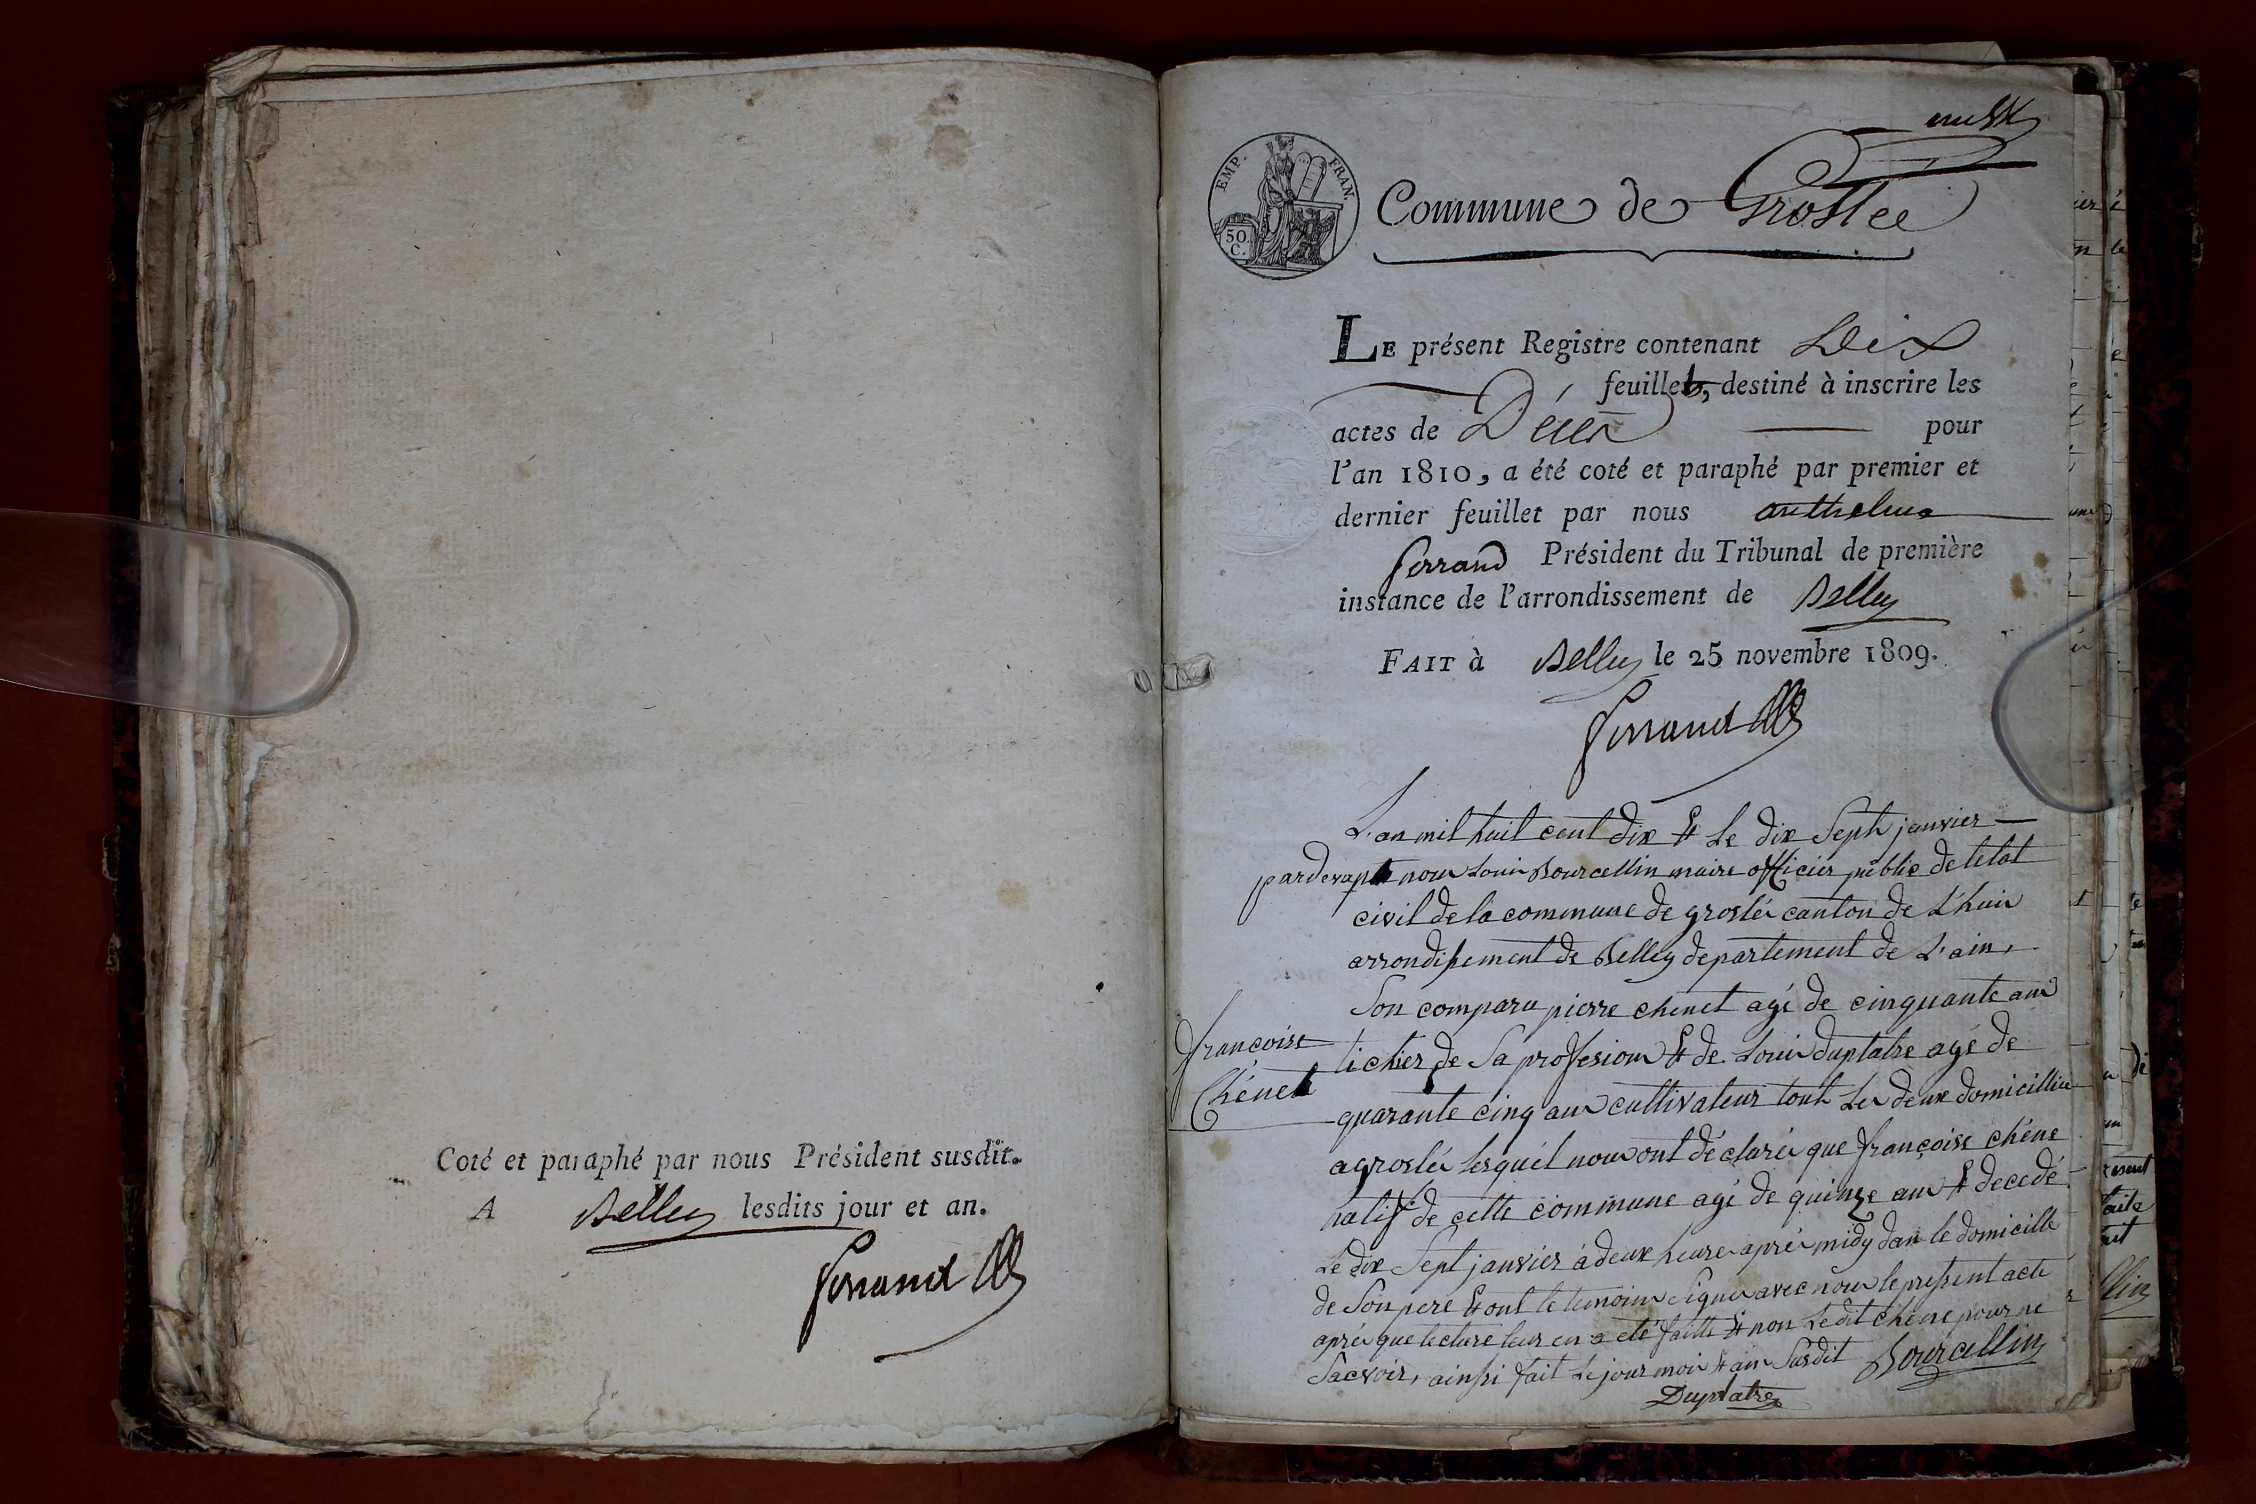 Coté et paraphé par nous Président susdit.
A Belley lesdits jour et an.
Ferrand
EMP. FRAN.
50.
C.
Commune de Groslée
LE présent Registre contenant Dix
feuillets, destiné à inscrire les
actes de Décès pour
l'an 1810, a été coté et paraphé par premier et
dernier feuillet par nous anthelme
ferrand Président du Tribunal de première
instance de l'arrondissement de Belley
FAIT à Belley le 25 novembre 1809.
Ferrand
L'an mil huit cent dix & Le dix Sept janvier
pardevant nous Louis Bourcellin maire officier public de letat
civil de la commune de groslée canton de L'huis
arrondissement de Belley departement de L'ain,
Son comparu pierre chenet agé de cinquante ans
françoise
Chénet
tichier de Sa profesion & de Louis duplatre agé de
quarante cinq ans cultivateur tout Les deux domicillies
a groslée lesquél nous ont déclarés que françoise chéne
natif de cette commune agé de quinze ans & decedé
Le dix Sept janvier a deux heures aprés midy dans le domicille
de Son pere & ont le temoins signés avec nous le present acte
aprés que lecture leur en a eté faitte & non Ledit chéne pour ne
Sacvoir, ainssi fait Le jour mois & ans Susdit Bourcellin
Duplatre